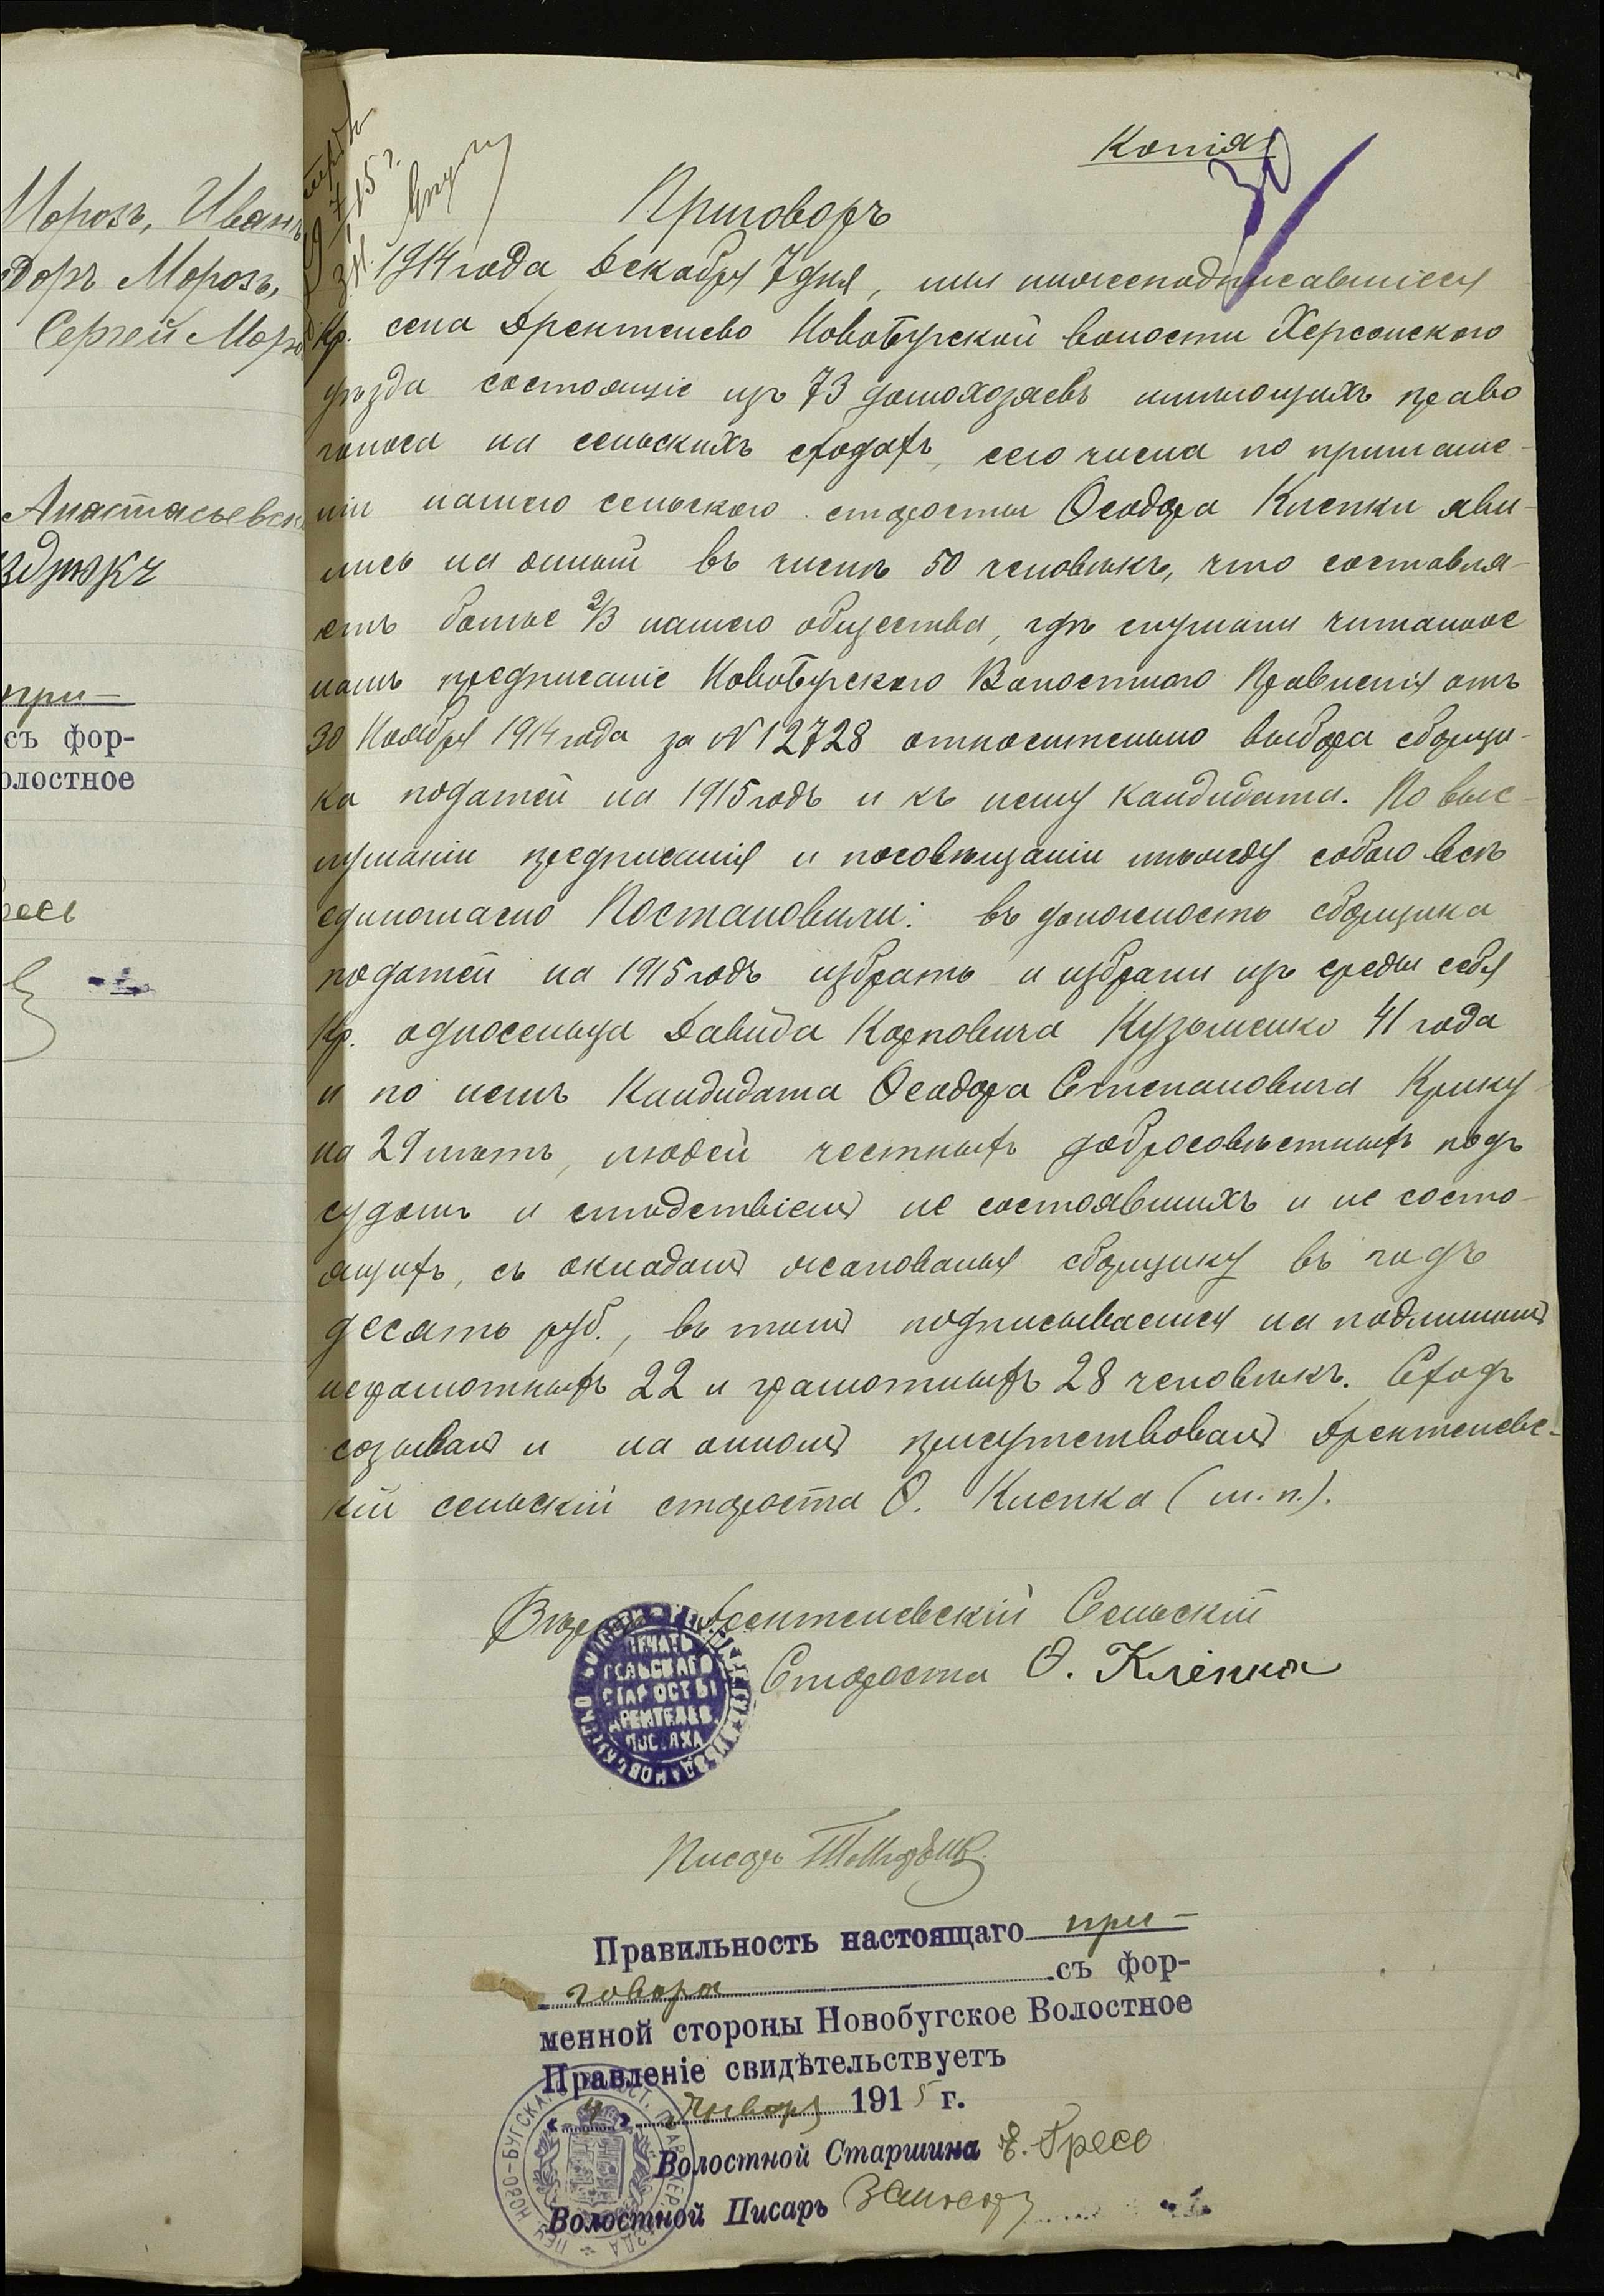 Морозъ, Иванъ
доръ Морозъ,
Сергей Моро
Анастасьевск
при-
съ фор-
олостное
ресь
Копія
30
Приговоръ
1914 года Декабря 7 дня, мы нижеподписавшіеся
Кр. села Дрентелево Новобугской волости Херсонскаго
уѣзда состоящіе изъ 73 домохозяевъ имѣющихъ право
голоса на сельскихъ сходахъ, сего числа по приглаше-
ніи нашего сельскаго старосты Ѳеодора Клепки яви-
лись на оный въ числѣ 50 человѣкъ, что составля-
етъ болѣе 2/3 нашего общества, гдѣ слушали читанное
намъ предписаніе Новобугскаго Волостного Правленія отъ
30 Ноября 1914 года за № 12728 относительно выбора сборщи-
ка податей на 1915 годъ и къ нему кандидата. По выс-
лушаніи предписанія и посовѣщаніи между собою всѣ
единогласно Постановили: въ должность сборщика
податей на 1915 годъ избрать и избрали изъ среды себя
Кр. односельца Давида Карповича Кузьменко 41 года
и по немъ Кандидата Ѳеодора Степановича Крику-
на 29 лѣтъ, людей честныхъ добросовѣстныхъ подъ
судомъ и слѣдствіемъ не состоявшихъ и не состо-
ящихъ, съ окладомъ жалованья сборщику въ годъ
десять руб., въ томъ подписываемся на подлинномъ
неграмотныхъ 22 и грамотныхъ 28 человѣкъ. Сходъ
созывалъ и на ономъ присутствовалъ Дрентелевс-
кій сельскій староста Ѳ. Клепка (м.п.).
Дрентелевскій Сельскій
Староста Ѳ. Клепка
ПЕЧАТЬ
СЕЛЬСКАГО
СТАРОСТЫ
ДРЕНТЕЛЕВ.
Писарь
Правильность настоящаго при-
говора съ фор-
менной стороны Новобугское Волостное
Правленіе свидѣтельствуетъ
Января 1915 г.
Волостной Старшина Е. Гресь
Волостной Писарь